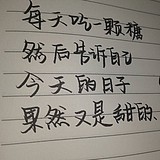 每天吃一颗糖
然后告诉自己
今天的日子
果然又是甜的、